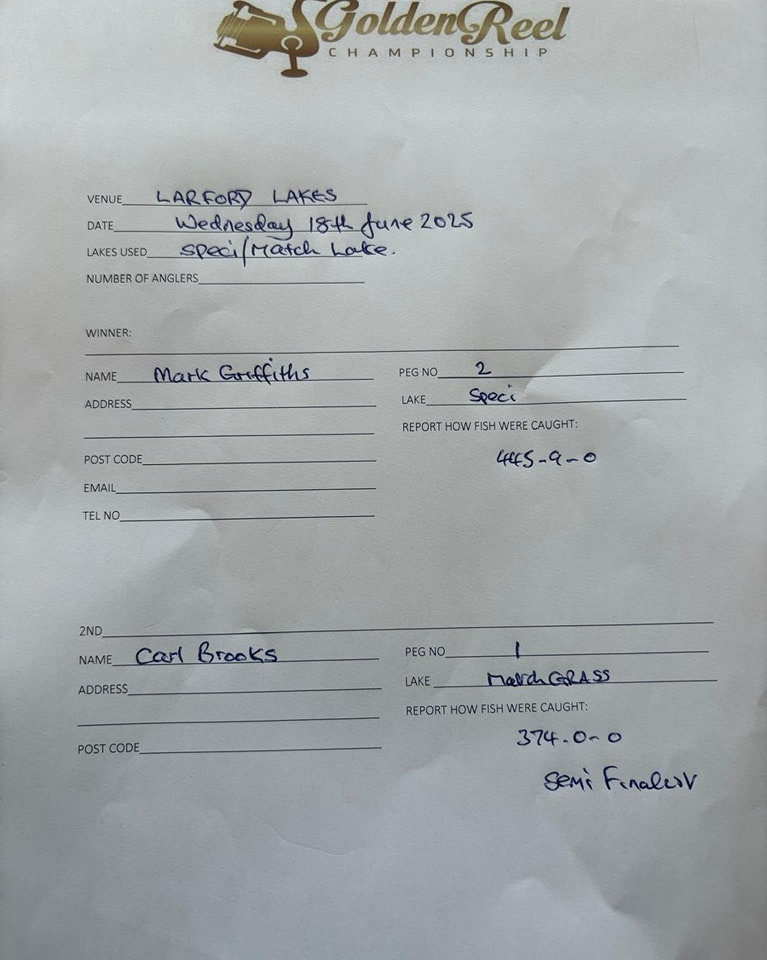 GoldenReel
CHAMPIONSHIP
VENUE LARFORD LAKES
DATE Wednesday 18th June 2025
LAKES USED Speci/Match Lake.
NUMBER OF ANGLERS
WINNER:
NAME Mark Griffiths PEG NO 2
ADDRESS LAKE Speci
REPORT HOW FISH WERE CAUGHT:
445-9-0
POST CODE
EMAIL
TEL NO
2ND
NAME Carl Brooks PEG NO 1
ADDRESS LAKE Match GRASS
REPORT HOW FISH WERE CAUGHT:
374-0-0
POST CODE
Semi Finalist